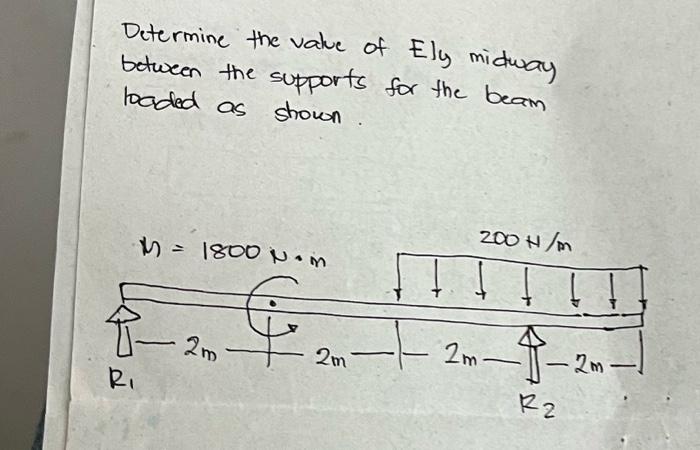 Determine the value of EIy midway
between the supports for the beam
loaded as shown.
M = 1800 N·m
200 N/m
2m
2m
2m
2m
R1
R2